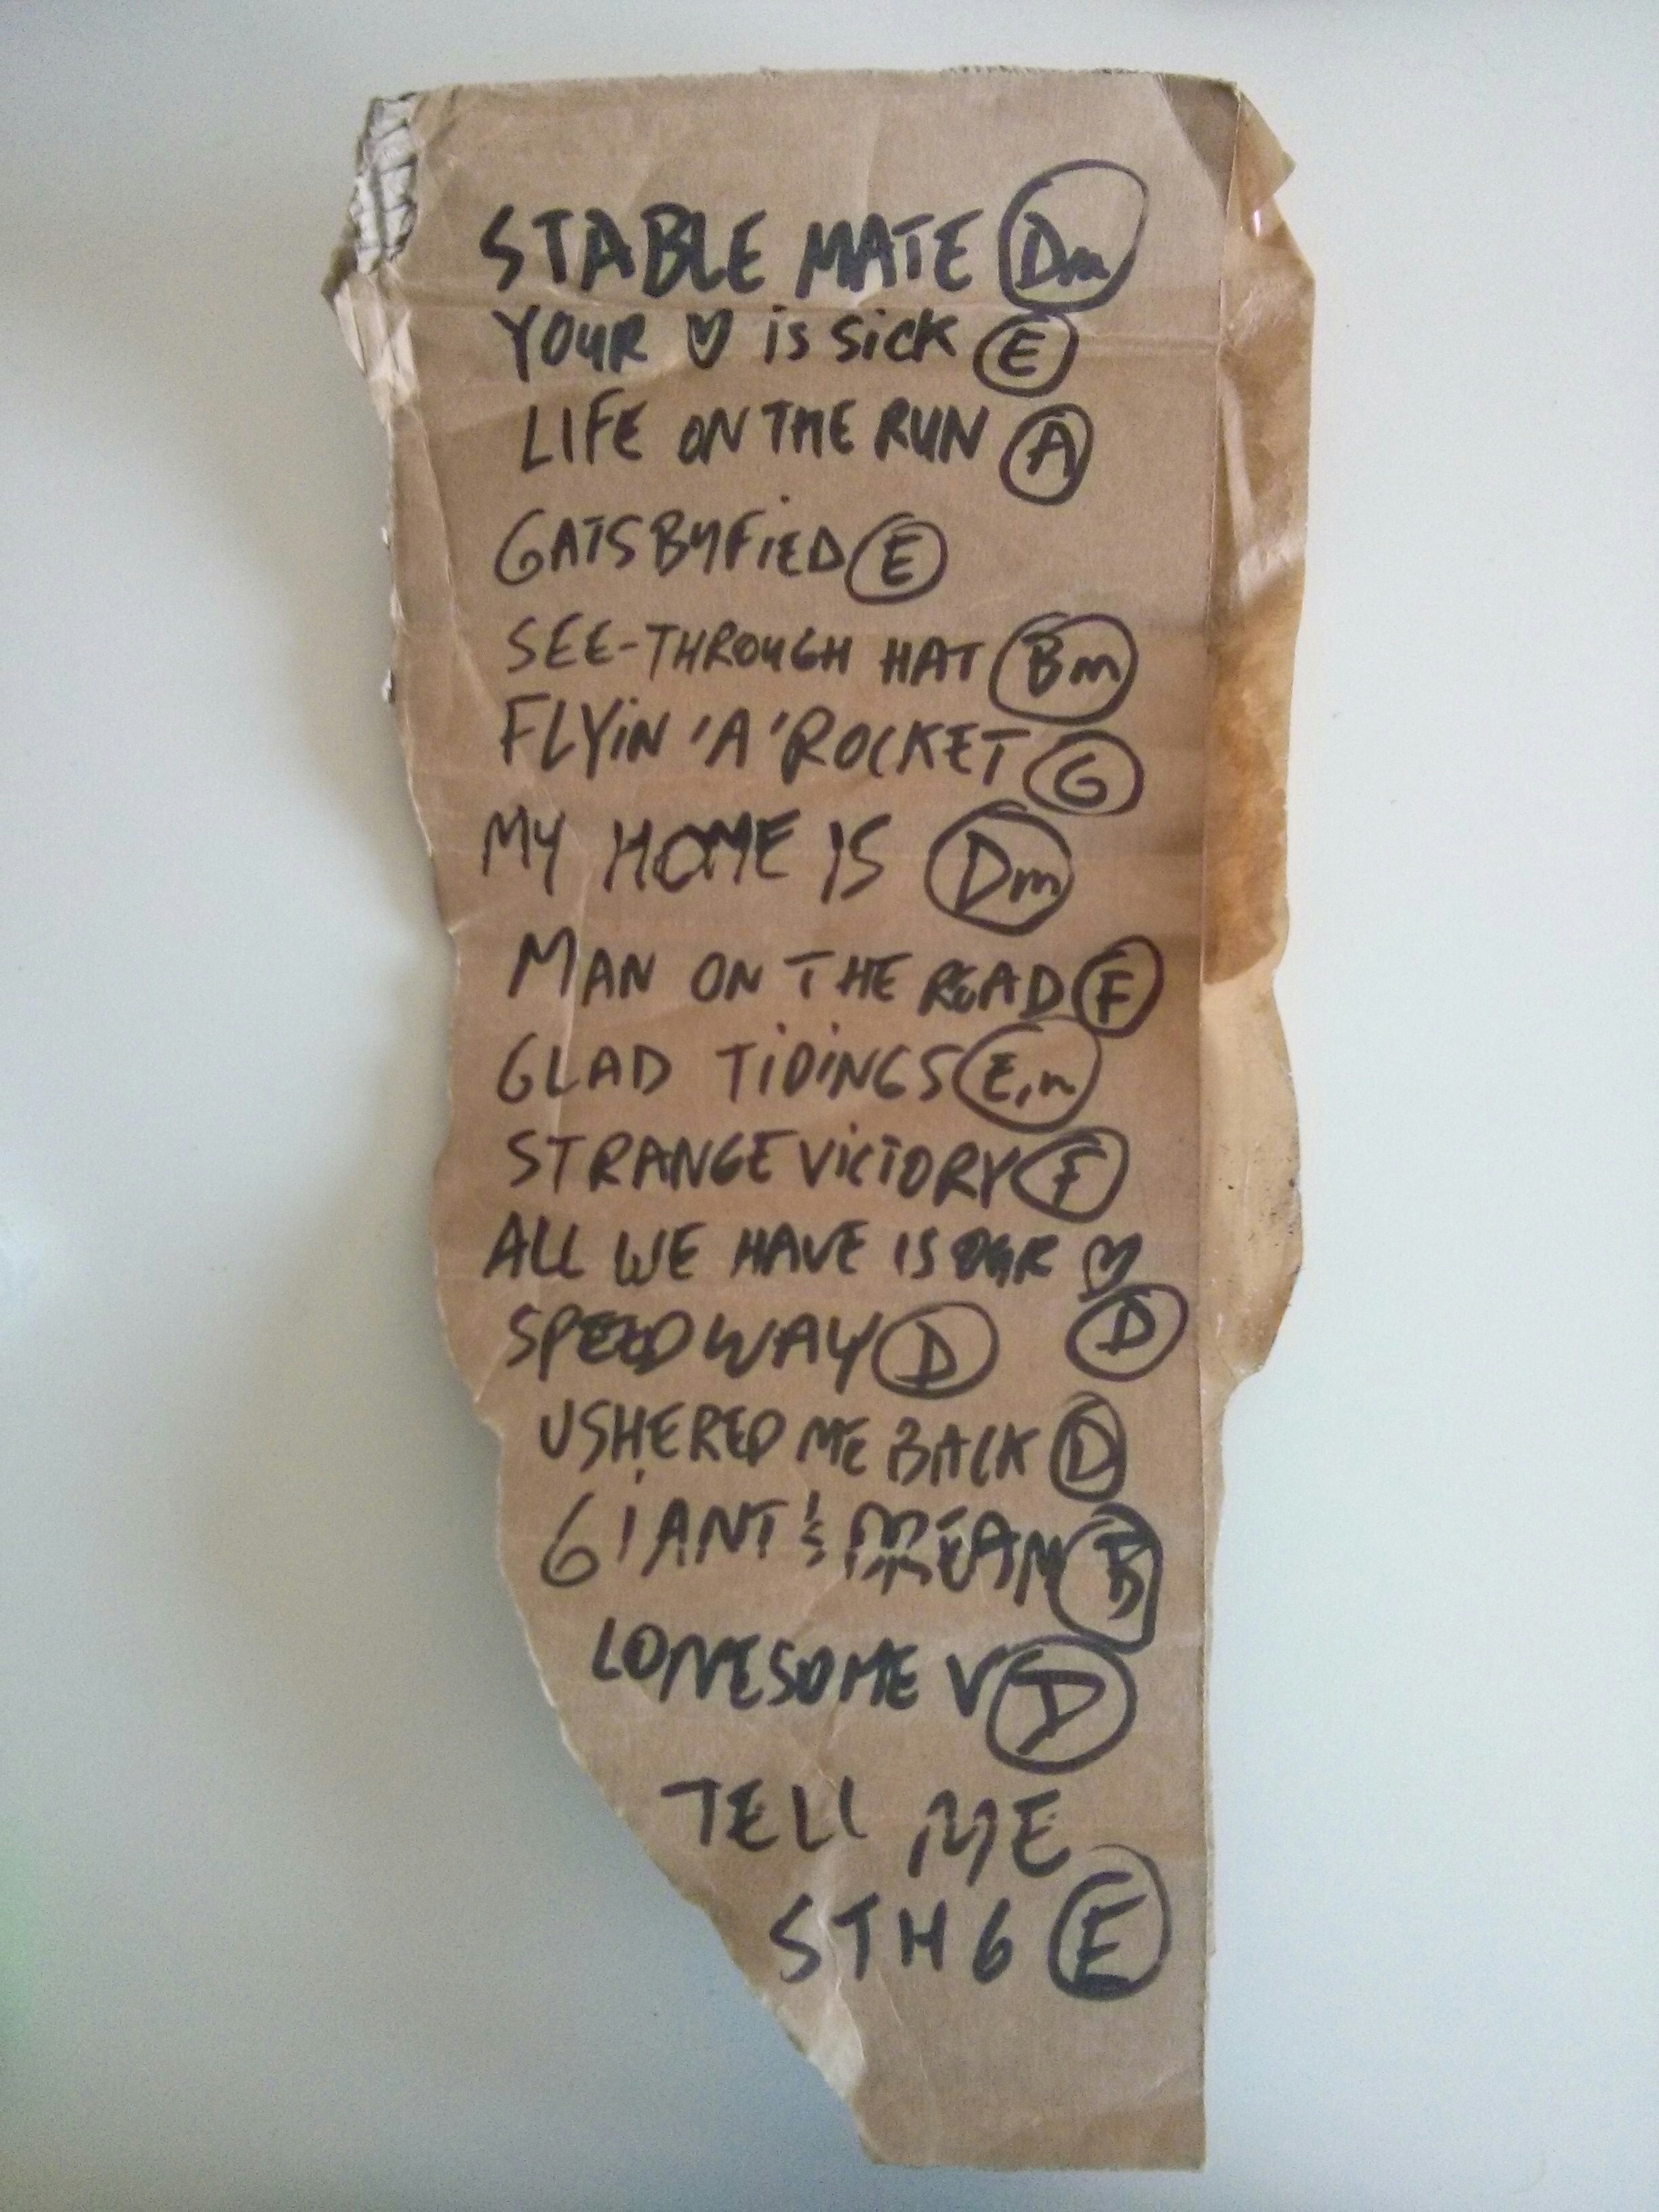 STABLE MATE Dm
YOUR ♡ is SiCK E
LIFE ON THE RUN A
GATSBYFiED E
SEE-THROUGH HAT Bm
FLYiN 'A' ROCKET G
MY HOME IS Dm
MAN ON THE ROAD F
GLAD TiDiNGS Em
STRANGE VICTORY F
ALL WE HAVE IS OUR ♡
SPEEDWAY D D
USHERED ME BACK D
GiANT & DREAM B
LONESOME V D
TELL ME
STH 6 E